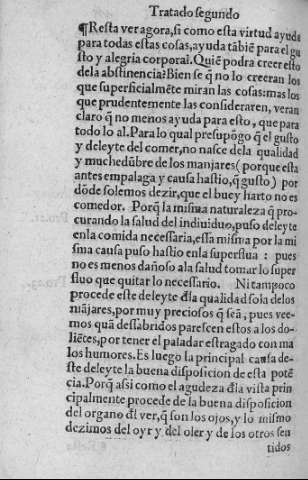 Tratado segundo
¶Resta ver agora, si como esta virtud ayuda
para todas estas cosas, ayuda tãbiẽ para el gu
sto y alegria corporal. Quiẽ podra creer esto
dela abstinencia? Bien se q̃ no lo creeran los
que superficialmẽte miran las cosas: mas los
que prudentemente las consideraren, veran
claro q̃ no menos ayuda para esto, que para
todo lo al. Para lo qual presupõgo q̃ el gusto
y deleyte del comer, no nasce dela qualidad
y muchedũbre de los manjares (porque esta
antes empalaga y causa hastio, q̃ gusto) por
dõde solemos dezir, que el buey harto no es
comedor. Porq̃ la misma naturaleza q̃ pro-
curando la salud del indiuiduo, puso deleyte
en la comida necessaria, essa misma por la mi
sma causa puso hastio en la superflua: pues
no es menos dañoso ala salud tomar lo super
fluo que quitar lo necessario. Ni tampoco
procede este deleyte d̃la qualidad sola delos
mãjares, por muy preciosos q̃ seã, pues vee-
mos quã dessabridos parescen estos a los do-
liẽtes, por tener el paladar estragado con ma
los humores. Es luego la principal causa de-
ste deleyte la buena disposicion de esta potẽ
cia. Porq̃ assi como el agudeza d̃la vista prin
cipalmente procede de la buena disposicion
del organo d̃l ver, q̃ son los ojos, y lo mismo
dezimos del oyr y del oler y de los otros sen
tidos